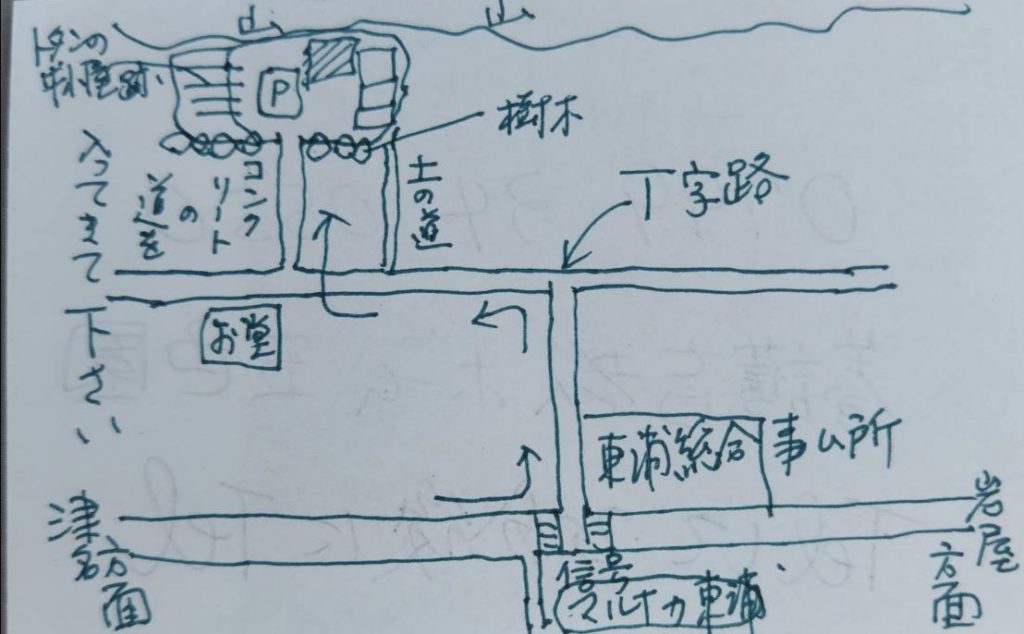 山
山
トタンの
小屋跡
P
樹木
コンク
リート
の
道を
入ってきて下さい
土の道
丁字路
お堂
東浦総合事ム所
津名方面
岩屋方面
信号
マルナカ東浦